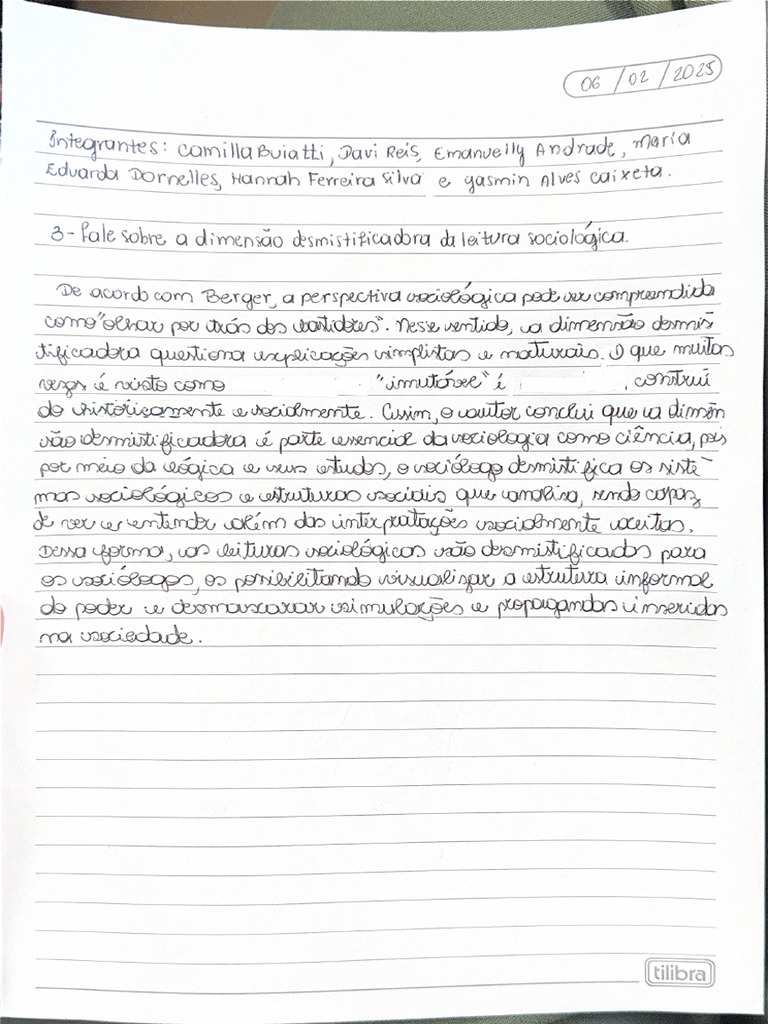 06 / 02 / 2025
Integrantes: Camilla Buiatti, Davi Reis, Emanuelly Andrade, Maria
Eduarda Dornelles, Hannah Ferreira Silva e Yasmin Alves Caixeta.
3- Fale sobre a dimensão desmistificadora da leitura sociológica.
De acordo com Berger, a perspectiva sociológica pode ser compreendida
como "olhar por trás dos bastidores". Nesse sentido, a dimensão desmis
tificadora questiona explicações simplistas e naturais. O que muitas
vezes é visto como "imutável" é construí
do historicamente e socialmente. Assim, o autor conclui que a dimen
são desmistificadora é parte essencial da sociologia como ciência, pois
por meio da lógica e seus estudos, o sociólogo desmistifica os siste-
mas sociológicos e estruturas sociais que analisa, sendo capaz
de ver e entender além das interpretações socialmente aceitas.
Dessa forma, as leituras sociológicas são desmistificadas para
os sociólogos, os possibilitando visualizar a estrutura informal
do poder e desmascarar simulações e propagandas inseridas
na sociedade.
tilibra